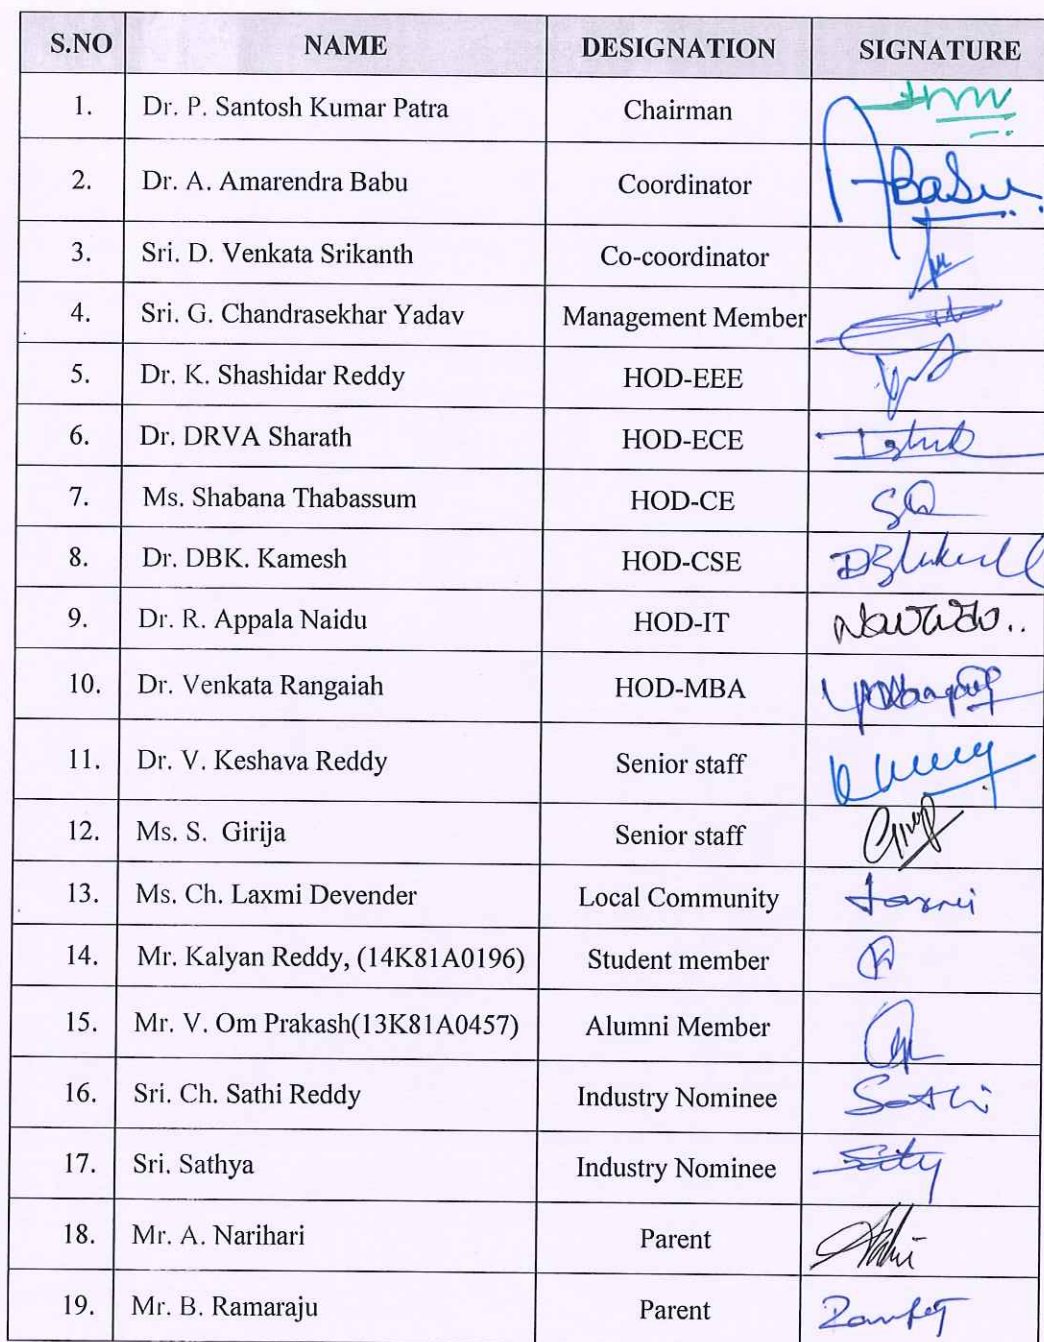 S.NO NAME DESIGNATION SIGNATURE
1. Dr. P. Santosh Kumar Patra Chairman
2. Dr. A. Amarendra Babu Coordinator ABabu
3. Sri. D. Venkata Srikanth Co-coordinator
4. Sri. G. Chandrasekhar Yadav Management Member
5. Dr. K. Shashidar Reddy HOD-EEE
6. Dr. DRVA Sharath HOD-ECE
7. Ms. Shabana Thabassum HOD-CE
8. Dr. DBK. Kamesh HOD-CSE
9. Dr. R. Appala Naidu HOD-IT
10. Dr. Venkata Rangaiah HOD-MBA
11. Dr. V. Keshava Reddy Senior staff
12. Ms. S. Girija Senior staff
13. Ms. Ch. Laxmi Devender Local Community
14. Mr. Kalyan Reddy, (14K81A0196) Student member
15. Mr. V. Om Prakash(13K81A0457) Alumni Member
16. Sri. Ch. Sathi Reddy Industry Nominee Sathi
17. Sri. Sathya Industry Nominee
18. Mr. A. Narihari Parent
19. Mr. B. Ramaraju Parent